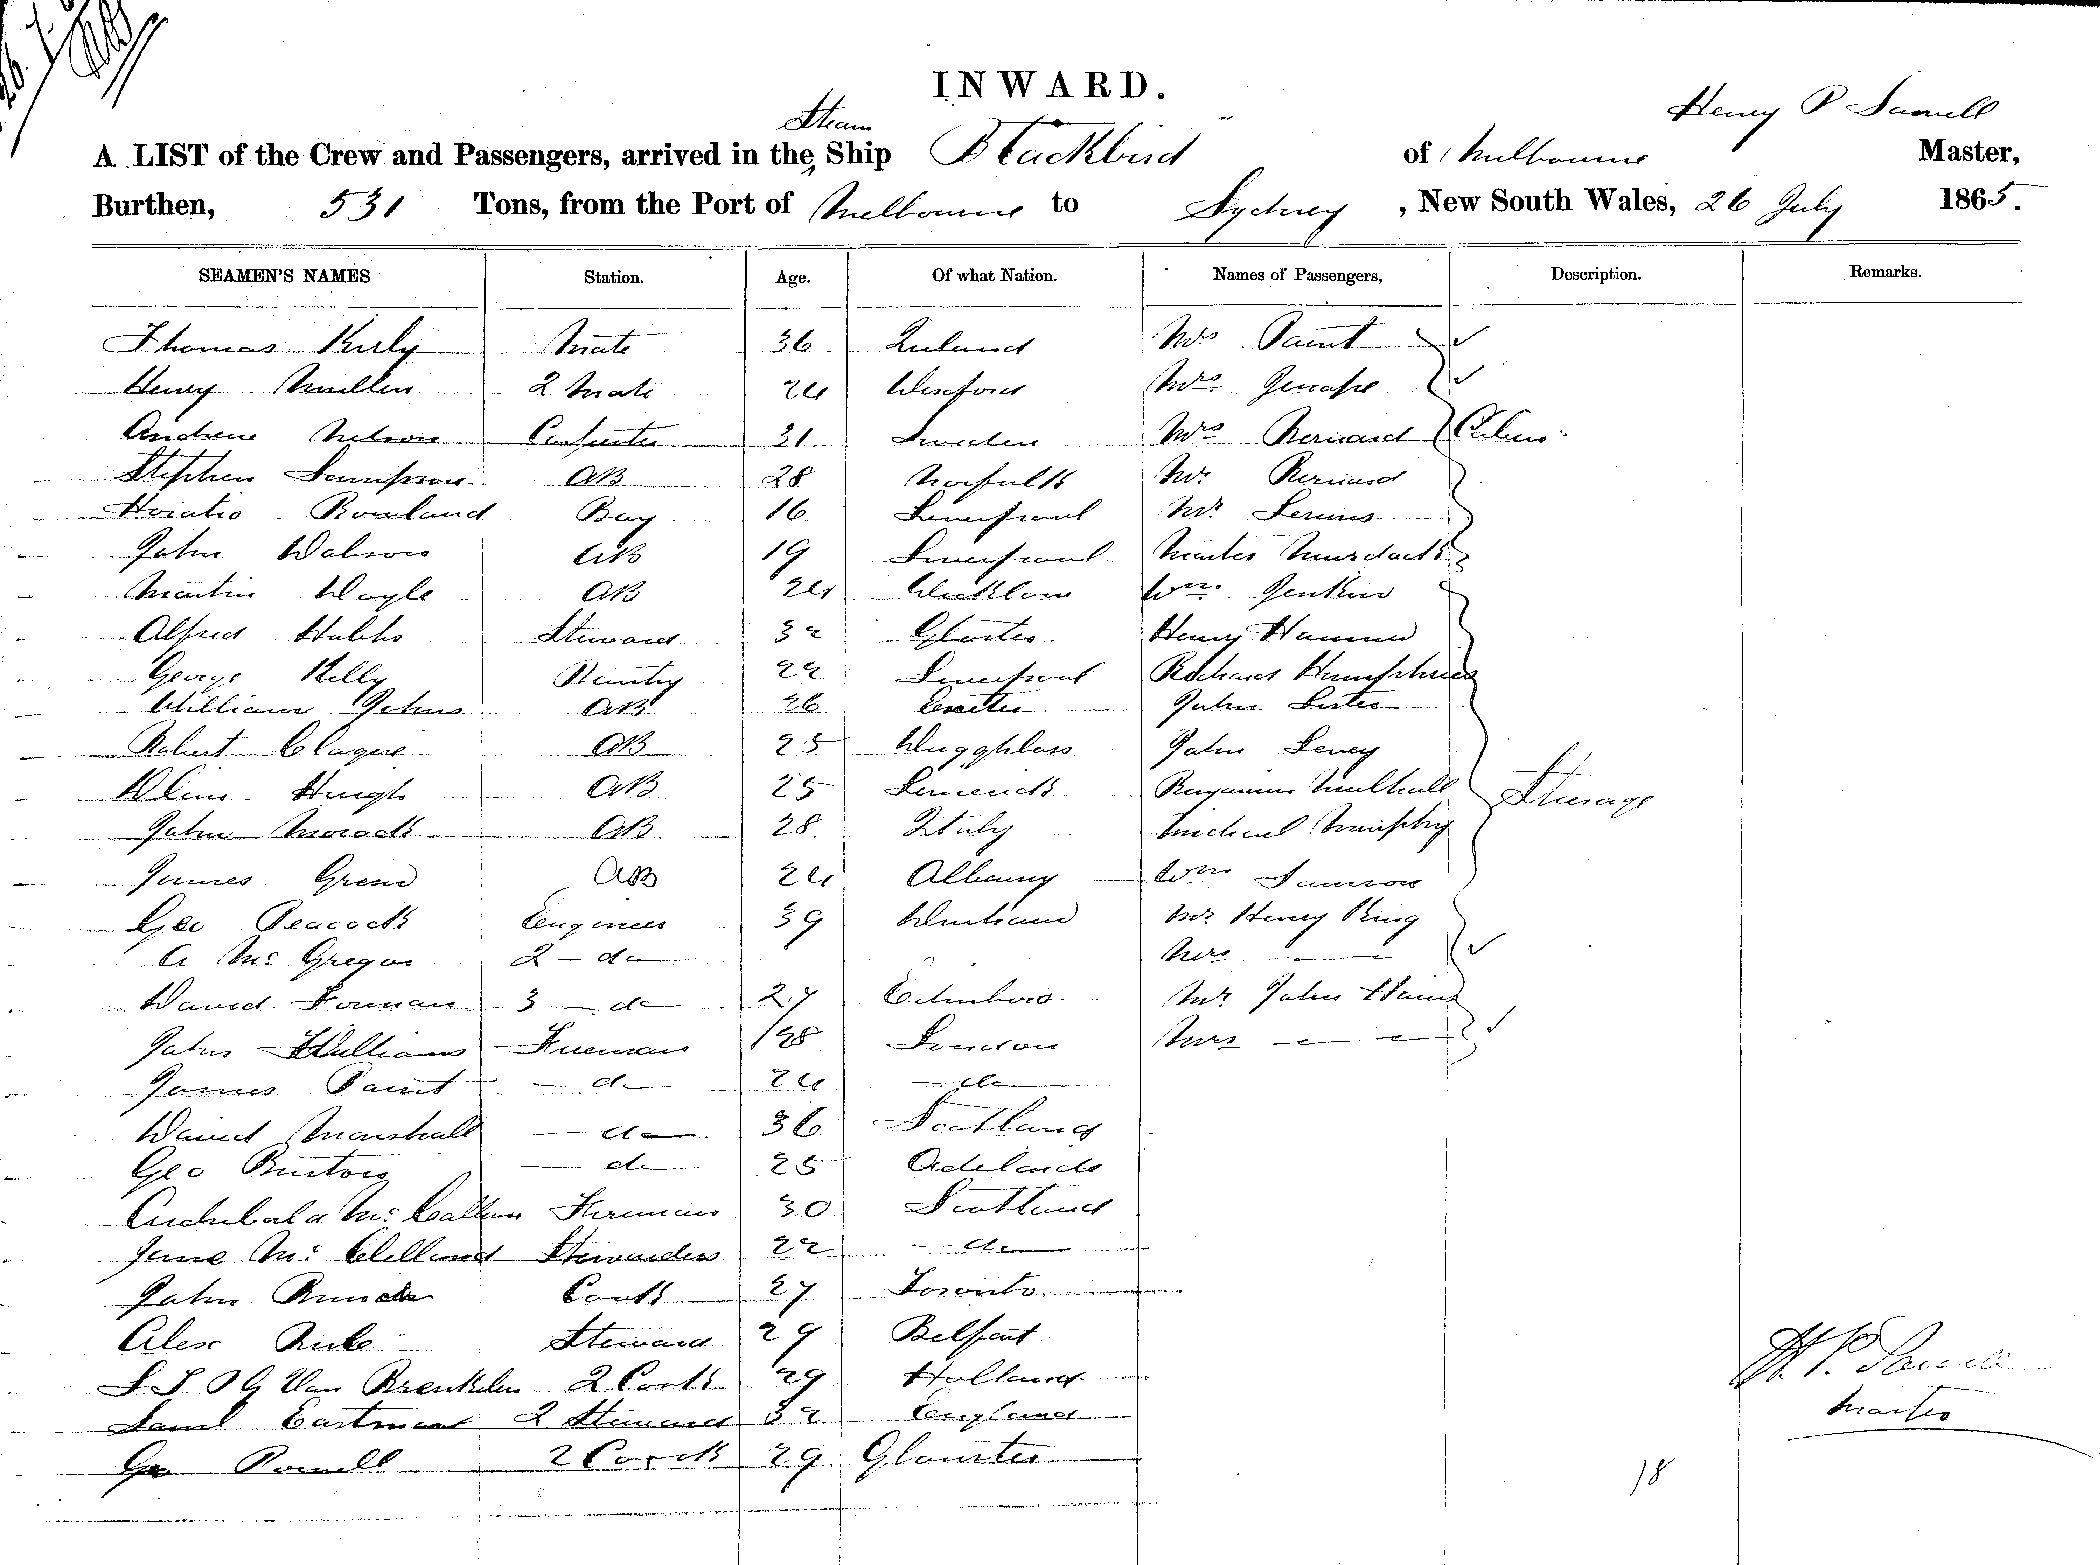 INWARD.
Henry P
A LIST of the Crew and Passengers, arrived in the Steam Ship Blackbird of Melbourne Master,
Burthen, 531 Tons, from the Port of Melbourne to Sydney , New South Wales, 26 July 1865.
SEAMEN'S NAMES Station. Age. Of what Nation. Names of Passengers, Description. Remarks.
Thomas Mate 36 Mrs Paint
Henry Mullen 2 Mate 24 Wexford Mrs
Andrew Nelson Carpenter 31 Sweden Mrs Bernard Cabin
Stephen Sampson AB 28 Norfolk Mr Bernard
Horatio Rowland Boy 16 Liverpool Mr
John Watson AB 19 Liverpool Master Murdock
Martin Doyle AB 24 Wicklow Wm Jenkin
Alfred Hobbs Steward 32 Gloster Henry
George Kelly Pantry 22 Liverpool Richard Humphries
William Johns AB 26 Exeter John Lister
Robert Clague AB 25 Dugglass John Levey
Hugh AB 25 Limerick Benjamin Mulhall Steerage
John AB 28 Italy Michael Murphy
James Green AB 24 Albany Wm Samson
Geo Peacock Engineer 39 Durham Mr Henry King
A Mc Gregor 2 - do Mrs — —
David 3 - do 27 Edinboro Mr John
John Williams Fireman 28 London Mrs — —
James Paint - do 24 - do
David Marshall - do 36 Scotland
Geo Burton - do 25 Adelaide
Archibald Mc Callum Fireman 30 Scotland
Jane Mc Clelland Stewardess 22 - do
John Cook 27 Toronto
Alex Steward 29 Belfast
Van Brenkelen 2 Cook 29 Holland
Saml Eastman 2 Steward 32 England
H. P.
Master
Geo Powell 2 Cook 29 Glourster
18